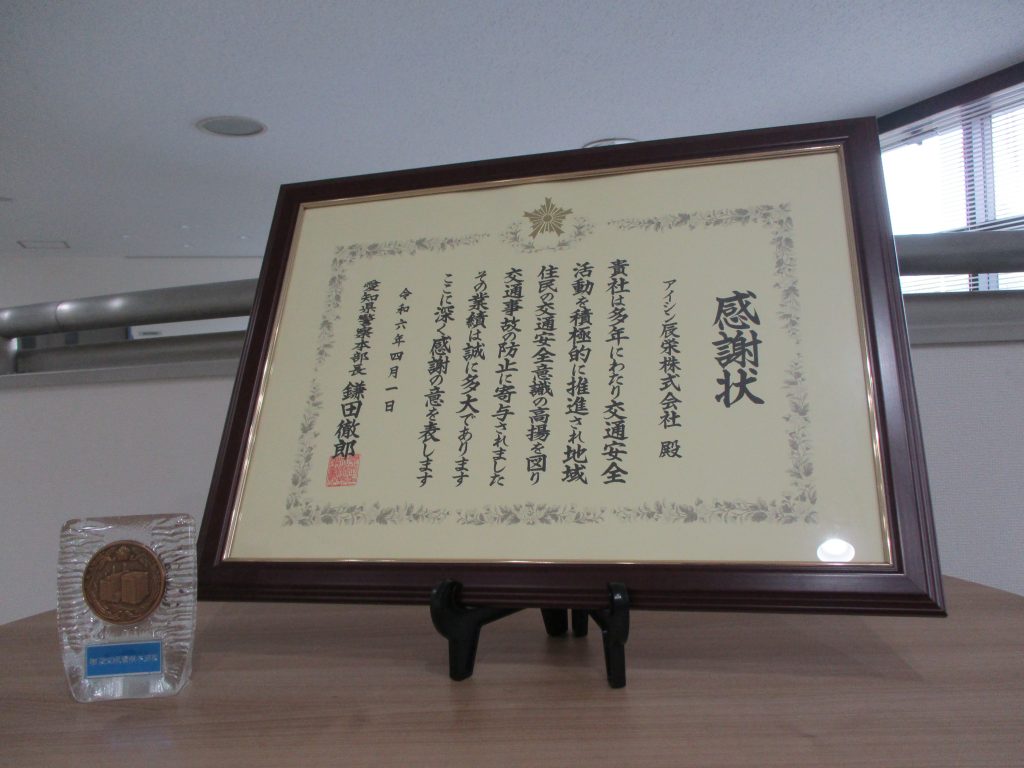 感謝状
アイシン辰栄株式会社 殿
貴社は多年にわたり交通安全
活動を積極的に推進され地域
住民の交通安全意識の高揚を図り
交通事故の防止に寄与されました
その業績は誠に多大であります
ここに深く感謝の意を表します
令和六年四月一日
愛知県警察本部長 鎌田徹郎